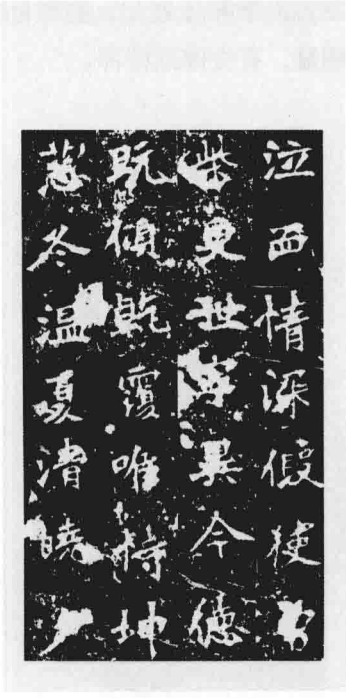 泣血情深假使曾
柴更世寧異今德
既傾乾覆唯恃坤
慈冬温夏清曉夕